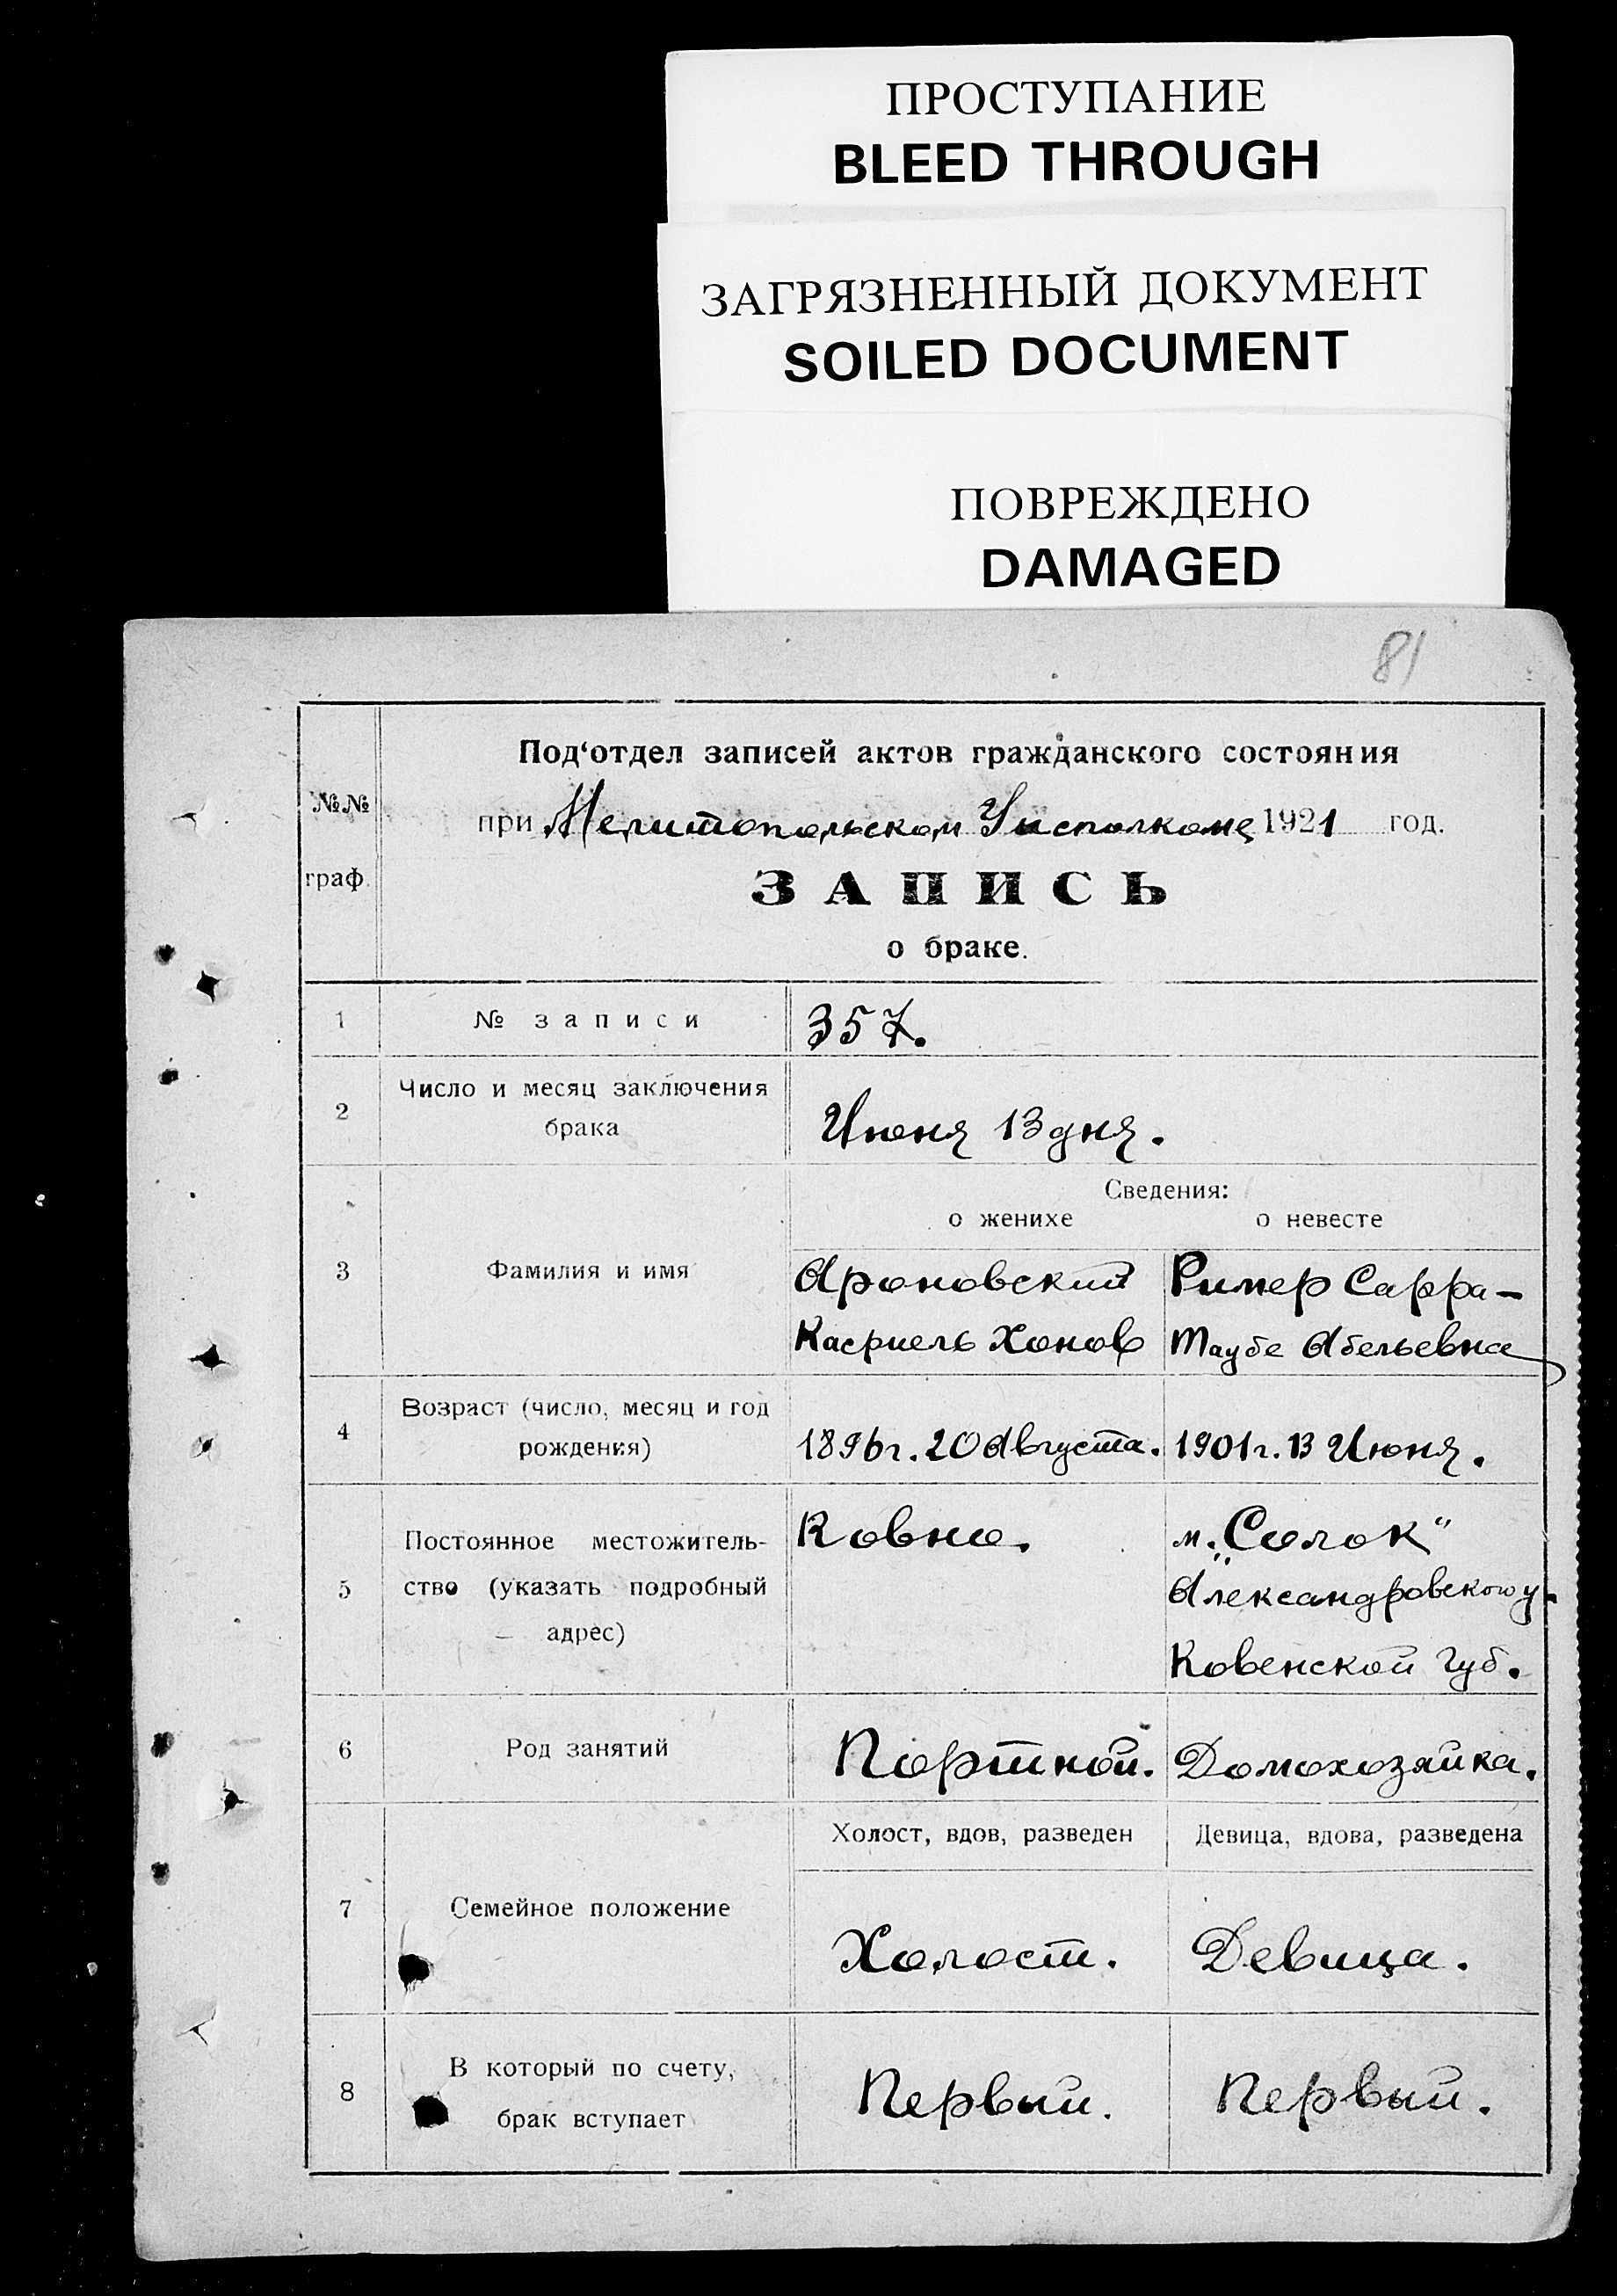 ПРОСТУПАНИЕ
BLEED THROUGH
ЗАГРЯЗНЕННЫЙ ДОКУМЕНТ
SOILED DOCUMENT
ПОВРЕЖДЕНО
DAMAGED
81
№№ граф.
Под‘отдел записей актов гражданского состояния
при Мелитопольском Уисполкоме 1921 год.
ЗАПИСЬ
о браке.
1 № записи 357.
2 Число и месяц заключения
брака
Июня 13 дня.
Сведения:
о женихе о невесте
3 Фамилия и имя
Ароновский Ример Сарра-
Касриель Хонов Таубе Абельевна
4 Возраст (число, месяц и год
рождения)
1896 г. 20 Августа. 1901 г. 13 Июня.
5 Постоянное местожитель-
ство (указать подробный
адрес)
Ковно. м. „Солок“
Александровского у.
Ковенской Губ.
6 Род занятий Портной. Домохозяйка.
Холост, вдов, разведен Девица, вдова, разведена
7 Семейное положение
Холост. Девица.
8 В который по счету,
брак вступает
Первый. Первый.